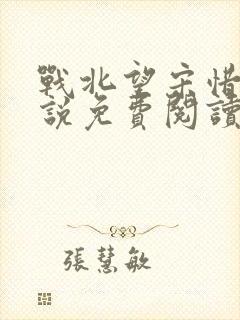 戰北望宋惜
說免費閱讀
張慧敏